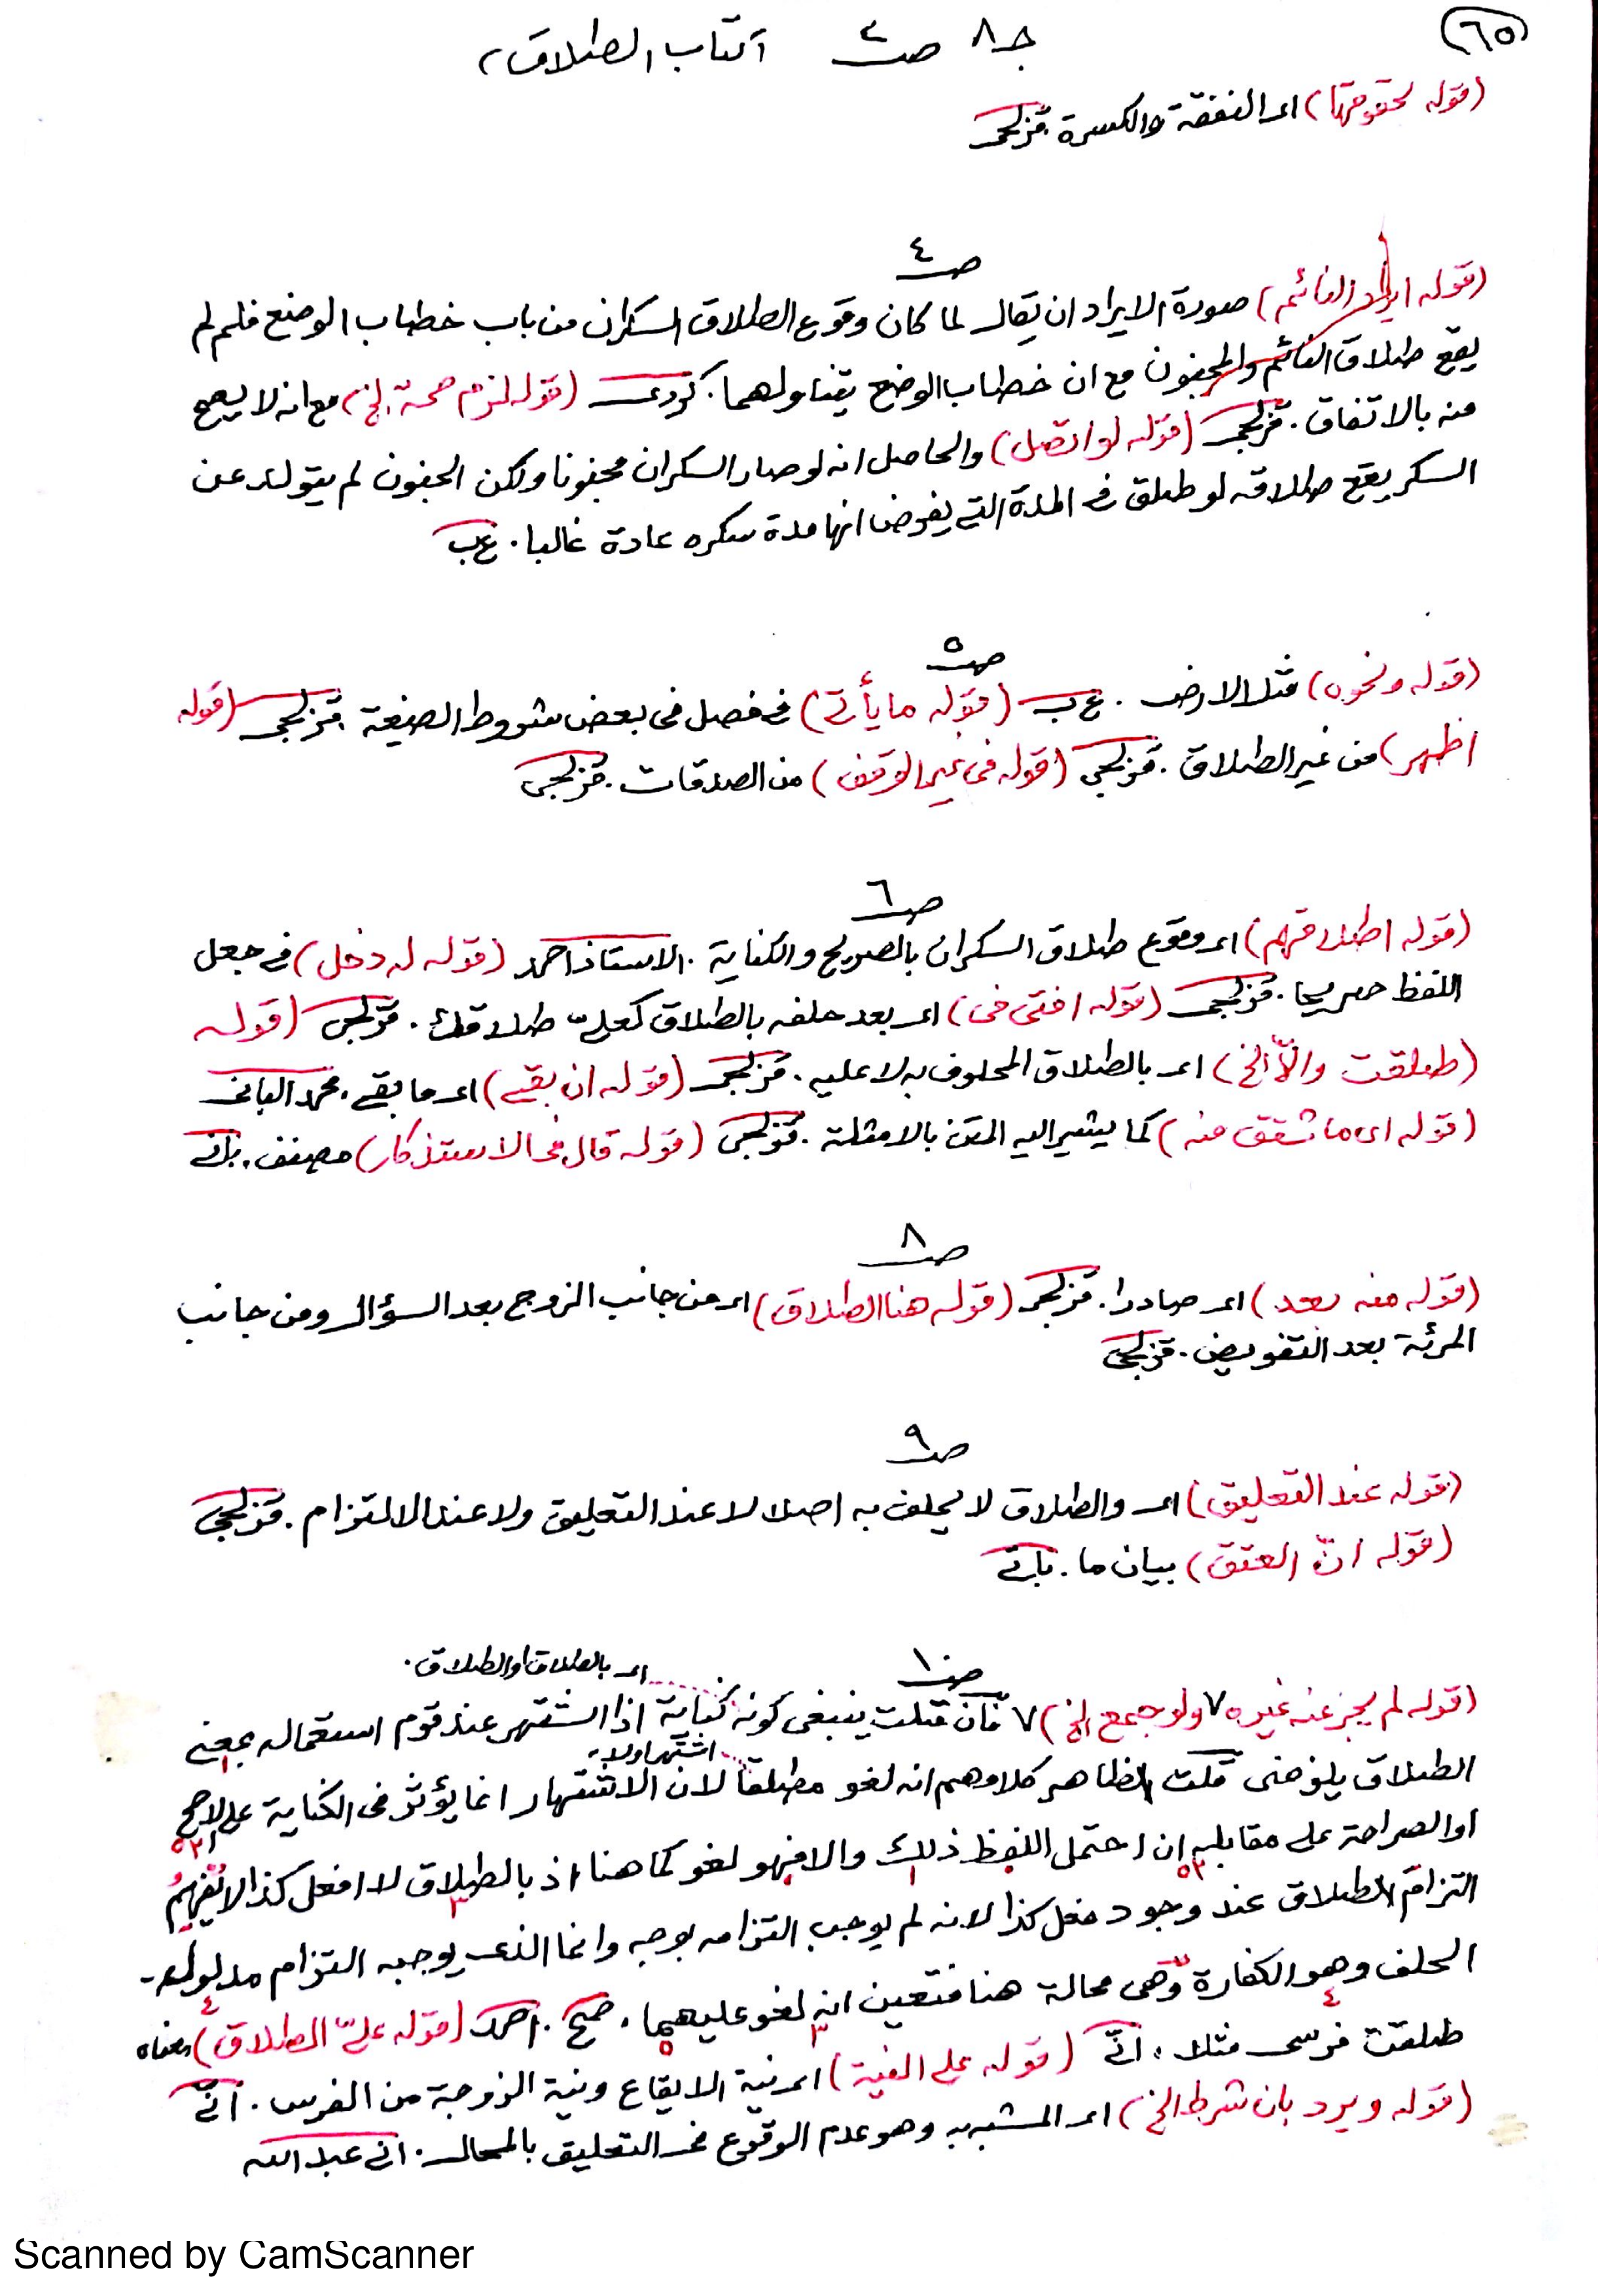 (٦٥)
جـ٨ صـ٢ كتاب الطلاق
(قوله لحقوقها) اى النفقة والكسوة. قزلجى
صـ٤
(قوله ايراد النائم) صورة الايراد ان يقال لما كان وقوع الطلاق السكران من باب خطاب الوضع فلم لم
يقع طلاق النائم والمجنون مع ان خطاب الوضع يتناولهما. كردى (قوله لزم صحة الخ) مع انه لا يصح
منه بالاتفاق. قزلجى (قوله لو اتصل) والحاصل انه لو صار السكران مجنونا ولكن الجنون لم يتولد عن
السكر يقع طلاقه لو طلق فى المدة التى يفرض انها مدة سكره عادة غالبا. ع ب
صـ٥
(قوله ونحوه) مثل الارض. ع ب (قوله ما يأتى) فى فصل فى بعض شروط الصيغة. قزلجى (قوله
اظهر) من غير الطلاق. قزلجى (قوله فى غير الوقف) من الصدقات. قزلجى
صـ٦
(قوله اطلاقهم) اى وقوع طلاق السكران بالصريح والكناية. الاستاذ احمد (قوله له دخل) فى جعل
اللفظ صريحا. قزلجى (قوله افتى فى) اى بعد حلفه بالطلاق كعلىّ طلاقك. قزلجى (قوله
(طلقت والاّ الخ) اى بالطلاق المحلوف به لا عليه. قزلجى (قوله ان بقى) اى ما بقى. محمد البانى
(قوله اى ما شقق منه) كما يشير اليه المتن بالامثلة. قزلجى (قوله قال فى الاستذكار) مصنف.
صـ٨
(قوله منه بعد) اى صادرا. قزلجى (قوله هنا الطلاق) اى من جانب الزوج بعد السؤال ومن جانب
المرئة بعد التفويض. قزلجى
صـ٩
(قوله عند التعليق) اى والطلاق لا يحلف به اصلا لا عند التعليق ولا عند الالتزام. قزلجى
(قوله انّ العتق) بيان ما.
صـ١٠
اى بالطلاق او الطلاق.
(قوله لم يجز عنه غيره ٧ ولو جمع الخ) ٧ فان قلت ينبغى كونه كناية اذا اشتهر عند قوم استعماله بمعنى
اشتهر او لا
الطلاق يلزمنى قلت الظاهر كلامهم انه لغو مطلقا لان الاشتهار انما يؤثر فى الكناية على الاصح
او الصراحة على مقابله ان احتمل اللفظ ذلك والا فهو لغو كما هنا اذ بالطلاق لا افعل كذا لا يُفهِمُ
التزام الطلاق عند وجود فعل كذا لانه لم يوجب التزامه بوجه وانما الذى يوجبه التزام مدلوله
الحلف وهو الكفارة وهى محالة هنا فتعين انه لغو عليهما. صح. احمد (قوله علىّ الطلاق) معناه
طلقت فرسى مثلا. (قوله على النية) اى نية الايقاع ونية الزوجة من الفرس.
(قوله ويرد بان شرط الخ) اى المشبه به وهو عدم الوقوع فى التعليق بالمحال. عبد الله
Scanned by CamScanner